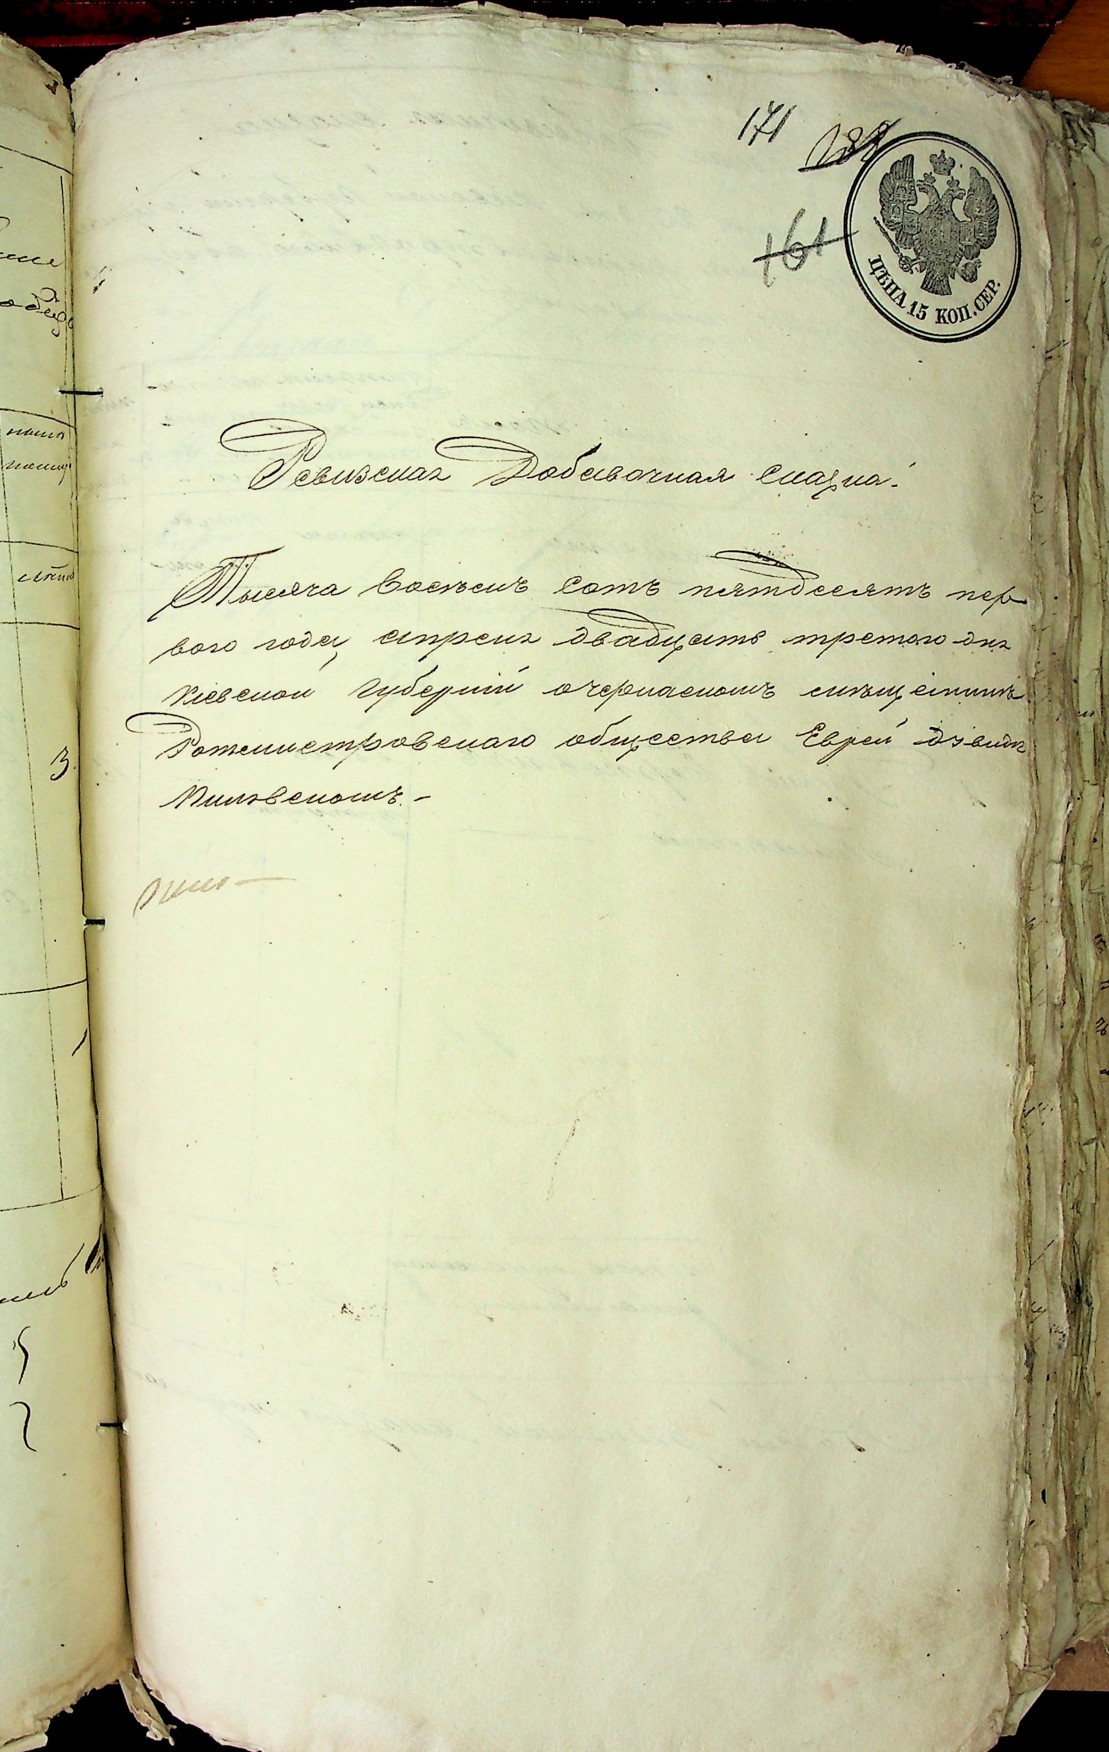 171
188
161
ЦѢНА 15 КОП. СЕР.
Ревизская Добавочная сказка.
Тысяча восемь сотъ пятдесятъ пер
вого года, апреля двадцать третого дня
Кіевской Губерніи о черкаскомъ мѣщанинѣ
Ротмистровскаго общества Еврей